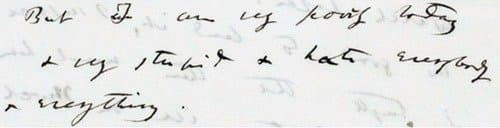 But I am very poorly today
& very stupid & hate everybody
& everything.